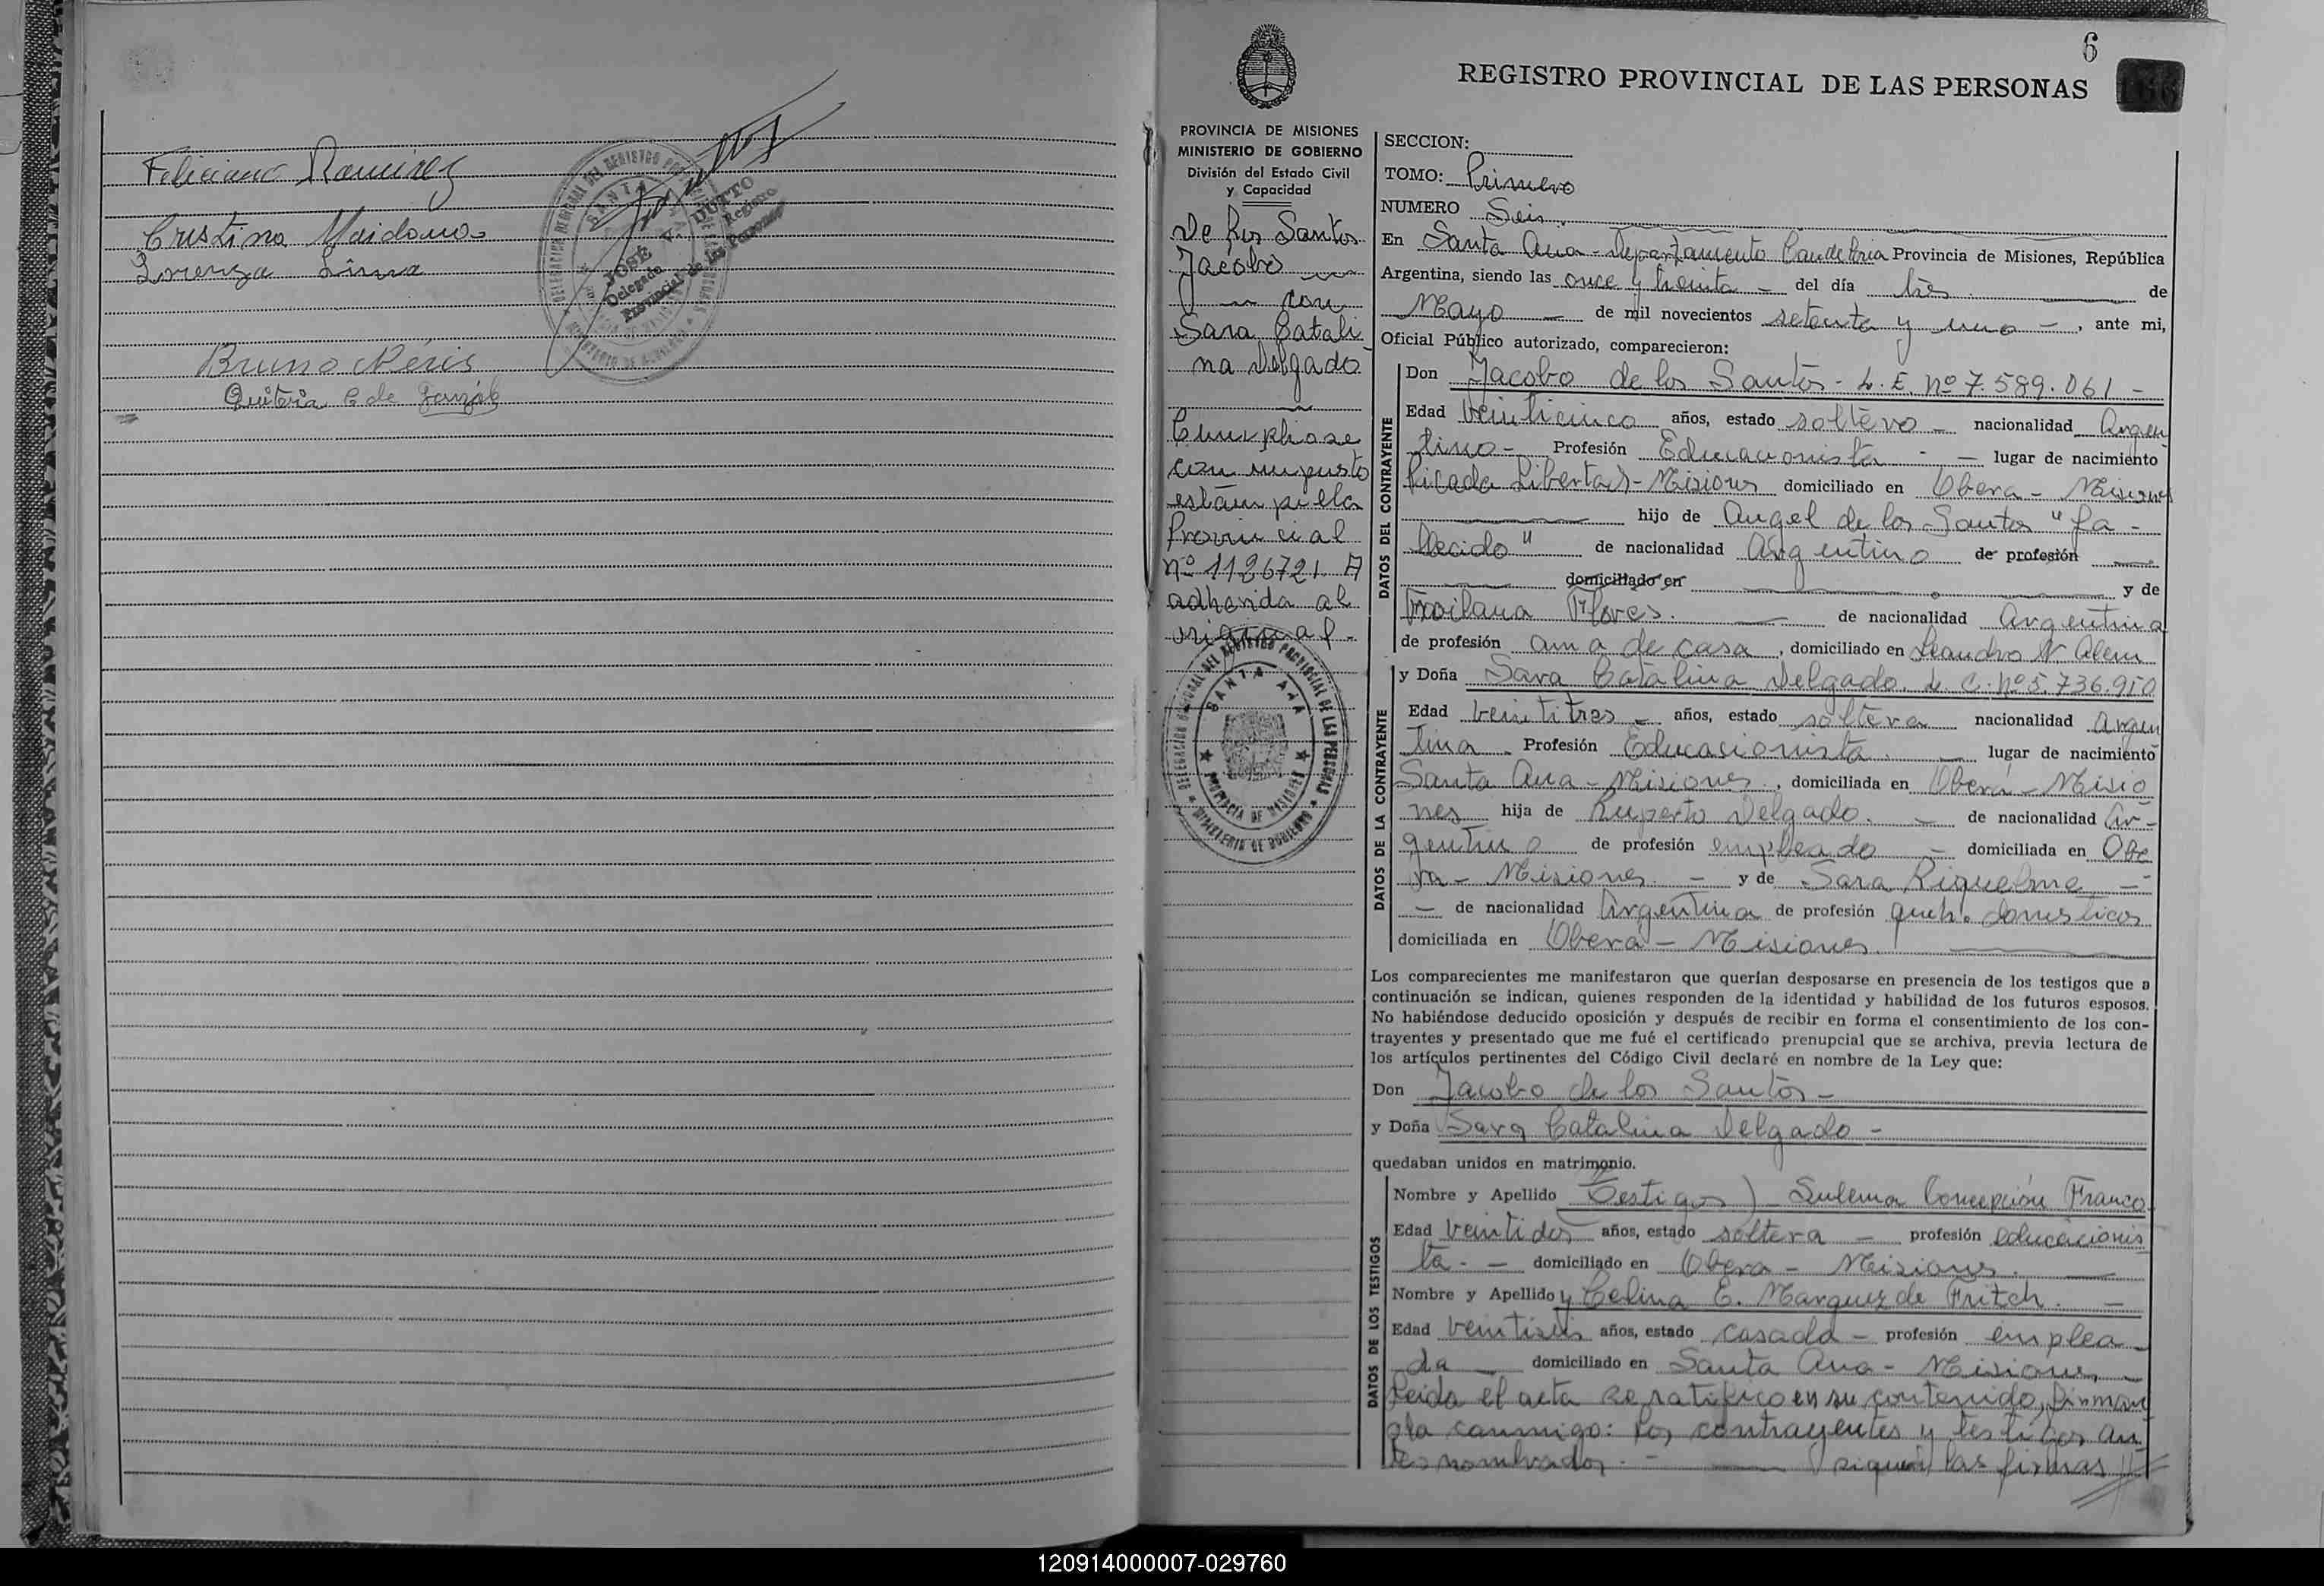 Feliciano Ramirez
Cristina Maidana
Lorenza Lima
DELEGACION GENERAL DEL REGISTRO PROVINCIAL DE LAS PERSONAS
SANTA ANA
MINISTERIO DE GOBIERNO
JOSE A. DUTTO
Delegado Registro
Provincial de las Personas
Bruno Néris
Quiteria C de
6
REGISTRO PROVINCIAL DE LAS PERSONAS
PROVINCIA DE MISIONES
MINISTERIO DE GOBIERNO
División del Estado Civil
y Capacidad
De los Santos
Jacobo
con
Sara Catali
na Delgado
Cumpliose
con impuesto
estampilla
Provincial
nº 1126721 A
adherida al
original.-
DELEGACION GENERAL DEL REGISTRO PROVINCIAL DE LAS PERSONAS
SANTA ANA
PROVINCIA DE MISIONES
MINISTERIO DE GOBIERNO
SECCION:
TOMO: Primero
NUMERO Seis.
En Santa Ana - Departamento Candelaria Provincia de Misiones, República
Argentina, siendo las once y treinta - del día tres de
Mayo - de mil novecientos setenta y uno -, ante mi,
Oficial Público autorizado, comparecieron:
DATOS DEL CONTRAYENTE
Don Jacobo de los Santos - L. E. nº 7.589.061 -
Edad veinticinco años, estado soltero - nacionalidad Argen
tino - Profesión Educacionista - - lugar de nacimiento
Picada Libertad - Misiones domiciliado en Obera - Misiones
hijo de Angel de los Santos "fa-
llecido" de nacionalidad Argentino de profesión
domiciliado en y de
Froilana Flores. de nacionalidad Argentina
de profesión ama de casa, domiciliado en Leandro N Alem
DATOS DE LA CONTRAYENTE
y Doña Sara Catalina Delgado. L. C. nº 5.736.950
Edad veintitres - años, estado soltera nacionalidad Argen
tina - Profesión Educasionista. - lugar de nacimiento
Santa Ana - Misiones, domiciliada en Oberá - Misio
nes hija de Ruperto Delgado. - de nacionalidad Ar-
gentino de profesión empleado - domiciliada en Obe
ra - Misiones. - y de Sara Riquelme -
- de nacionalidad Argentina de profesión queh. domesticos
domiciliada en Oberá - Misiones.
Los comparecientes me manifestaron que querían desposarse en presencia de los testigos que a
continuación se indican, quienes responden de la identidad y habilidad de los futuros esposos.
No habiéndose deducido oposición y después de recibir en forma el consentimiento de los con-
trayentes y presentado que me fué el certificado prenupcial que se archiva, previa lectura de
los artículos pertinentes del Código Civil declaré en nombre de la Ley que:
Don Jacobo de los Santos -
y Doña Sara Catalina Delgado -
quedaban unidos en matrimonio.
DATOS DE LOS TESTIGOS
Nombre y Apellido Testigos) - Sulema Concepción Franco
Edad veintidos años, estado soltera - profesión educacionis
ta. - domiciliado en Obera - Misiones.
Nombre y Apellido y Celina E. Marquez de Fritch. -
Edad veintiseis años, estado casada - profesión emplea
da - domiciliado en Santa Ana - Misiones, -
leida el acta se ratifico en su contenido, firman
dola conmigo: los contrayentes y testigos an
tes nombrados. - siguen las firmas //
120914000007-029760